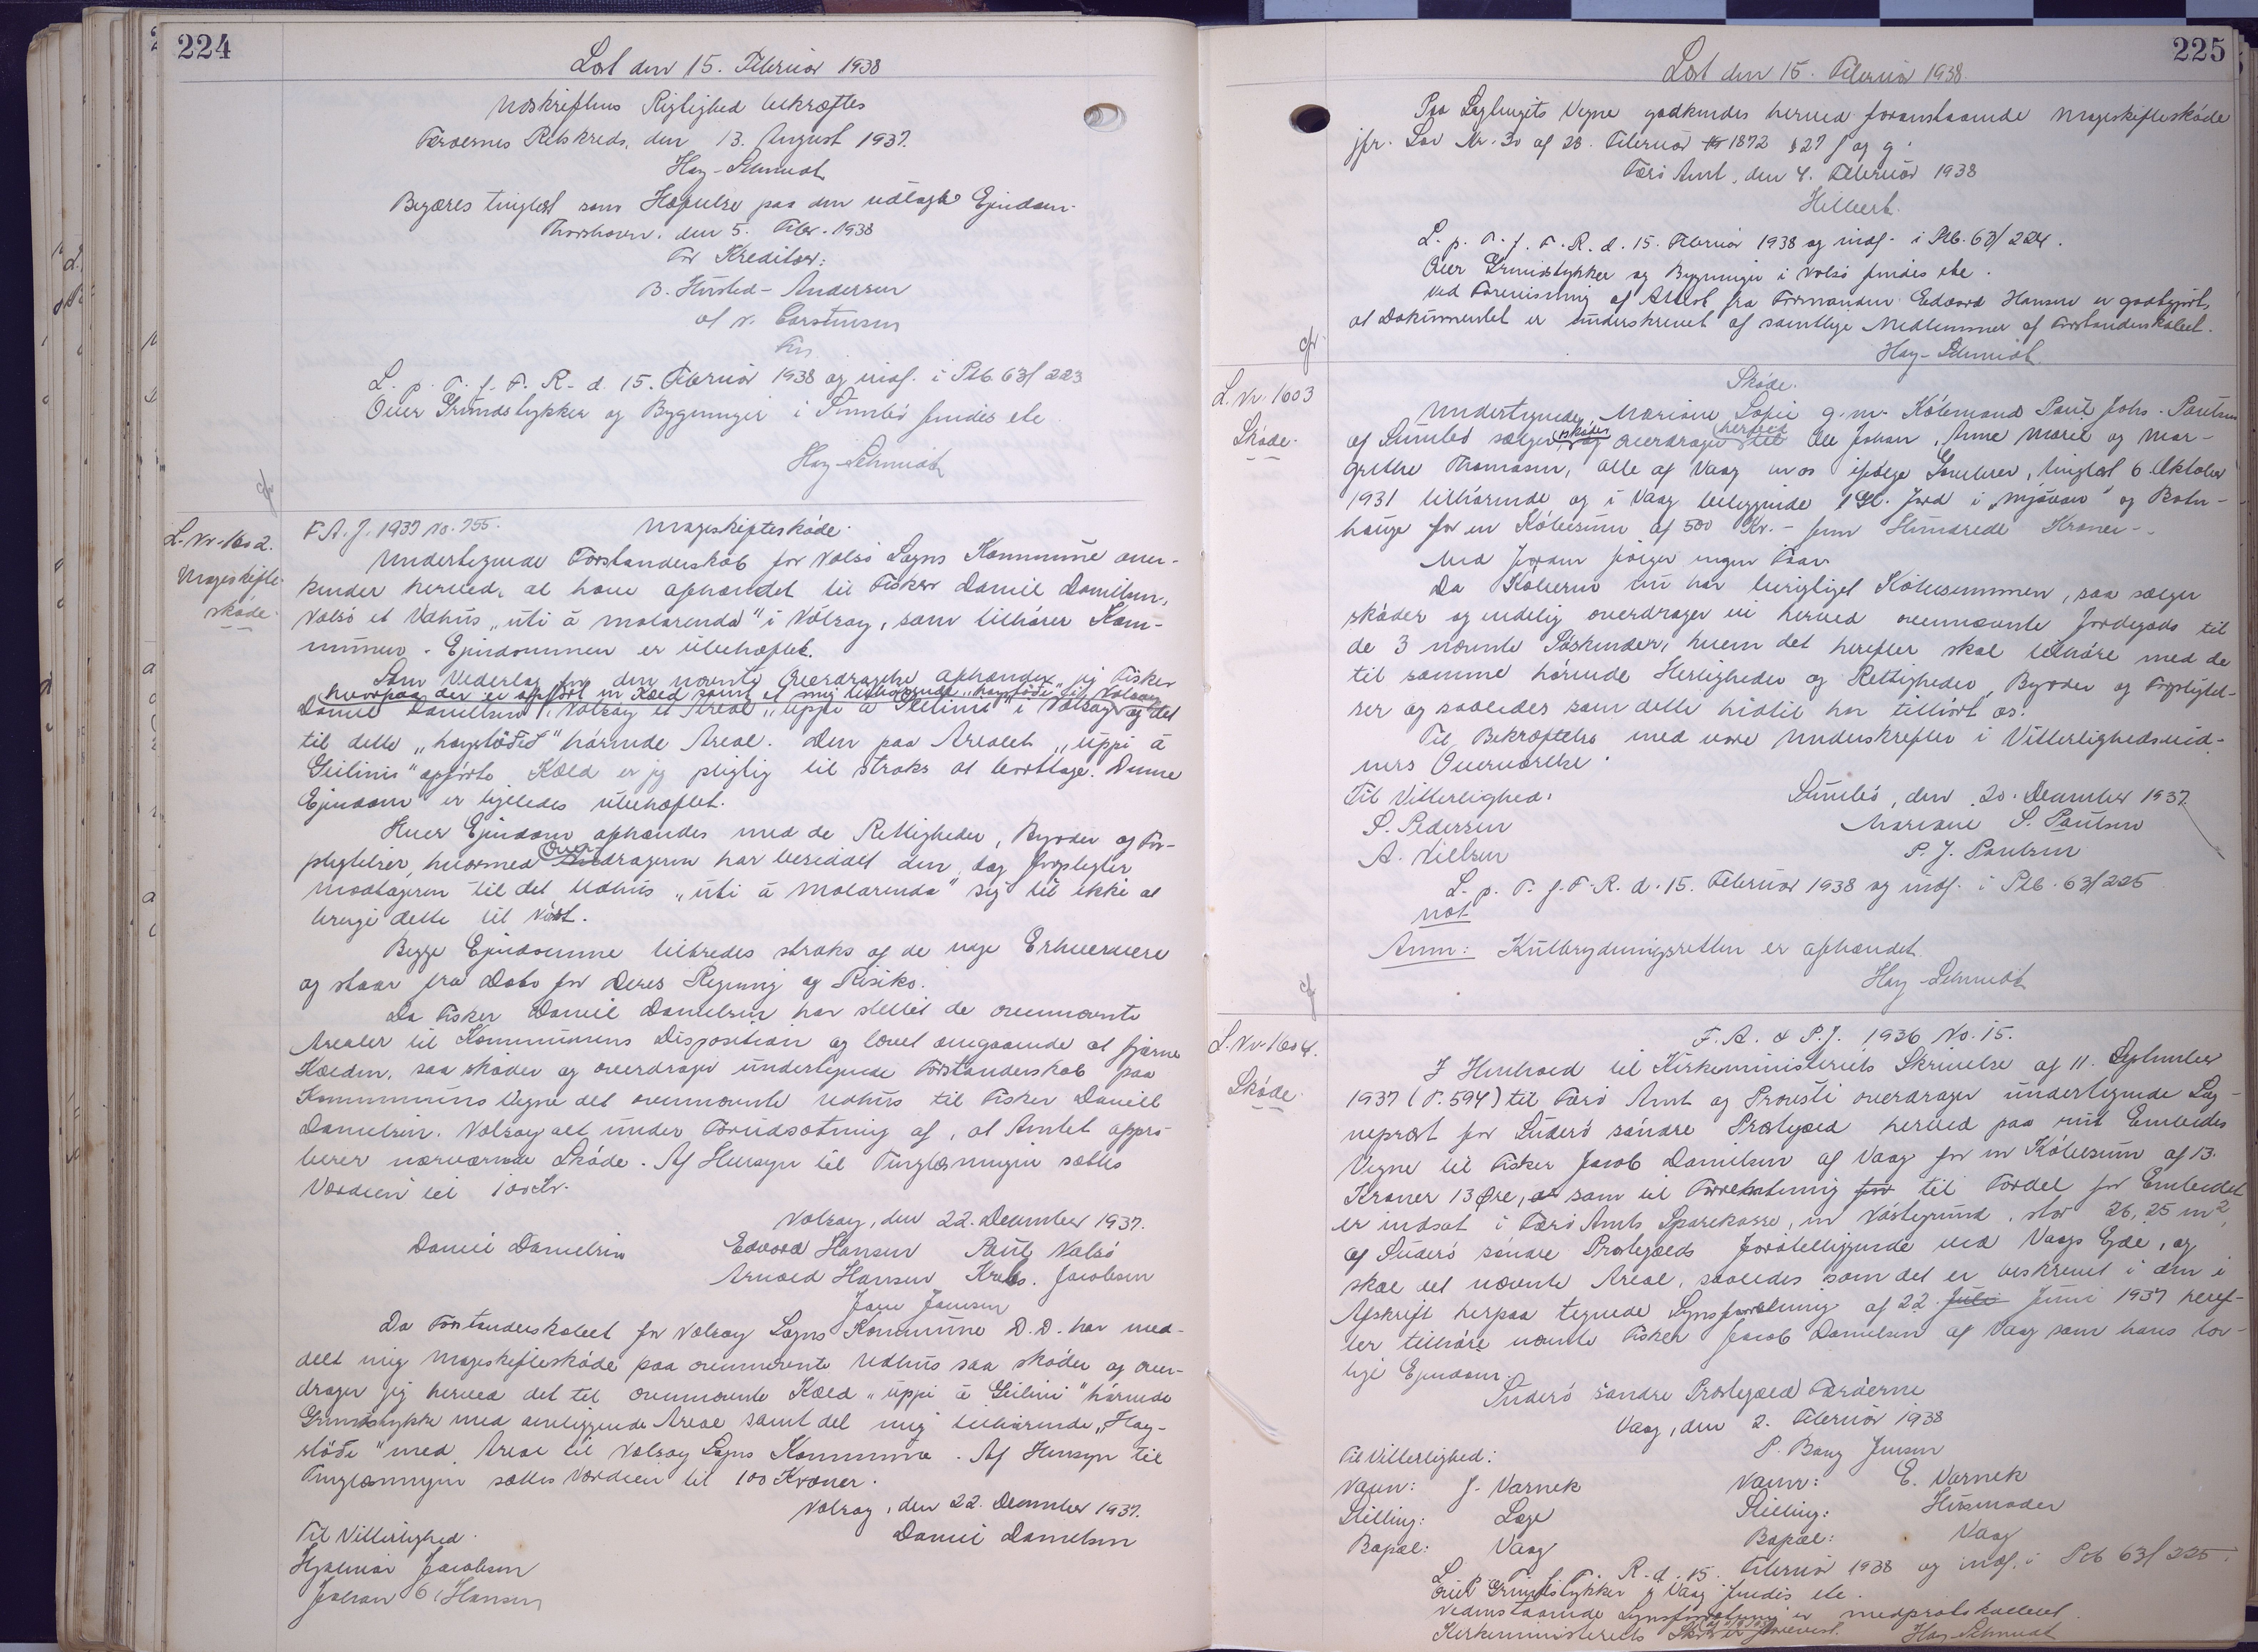 224
Læst den 15. Februar 1938
Udskriftens Rigtighed bekræftes
Færøernes Retskreds, den 13. August 1937.
Hay-Schmidt
Begæres tinglæst som Hæftelse paa den udlagte Ejendom.
Thorshavn, den 5. Febr. 1938
For Kreditor:
B. Husted-Andersen
V. Carstensen
L. p. T. f. F. R. d. 15. Februar 1938 og indf. i Ptb. 63/223
Over Grundstykker og Bygninger i Sumbø findes ete
Hay-Schmidt
L. Nr. 1602.
Mageskifte-
skøde.
F. A. J. 1937 No. 755. Mageskifteskøde.
Undertegnede Forstanderskab for Nolsø Sogns Kommune aner-
kender herved, at have afhændet til Fisker Daniel Danielsen,
Nolsø et Udhus „uti á molarenda" i Nólsoy, som tilhører Kom-
munen. Ejendommen er ubehæftet.
Som Vederlag for den nævnte Overdragelse afhænder jeg Fisker
hvorpaa der er opført en Kæld samt et mig tilhørende „hoystöði" i Nolsoy
Daniel Danielsen, Nolsoy et Areal „uppi á Geilini" i Nolsoy og det
til dette „hoystöðið" hørende Areal. Den paa Arealet „uppi á
Geilini" opførte Kæld er jeg pligtig til straks at borttage. Denne
Ejendom er ligeledes ubehæftet.
Hver Ejendom afhændes med de Rettigheder, Byrder og For-
pligtelser, hvormed Overdrageren har besiddet den, dog forpligter
Modtageren til det Udhus „uti á Molarenda" sig til ikke at
bruge dette til Nøst.
Begge Ejendomme tiltrædes straks af de nye Erhververe
og staar fra Dato for Deres Regning og Risiko.
Da Fisker Daniel Danielsen har stillet de ovennævnte
Arealer til Kommunens Disposition og lovet omgaaende at fjerne
Kælden, saa skøder og overdrager undertegnede Forstanderskab paa
Kommunens Vegne det ovennævnte Udhus til Fisker Daniel
Danielsen, Nolsoy alt under Forudsætning af, at Amtet appro-
berer nærværende Skøde. Af Hensyn til Tinglæsningen sættes
Værdien til 100 Kr.
Nolsoy, den 22. December 1937.
Daniel Danielsen Edvard Hansen Paul Nolsø
Arnold Hansen Jacobsen
Jansen
Da Forstanderskabet for Nolsoy Sogns Kommune D.D. har med-
delt mig Mageskifteskøde paa ovennævnte Udhus saa skøder og over-
drager jeg herved det til ovennævnte Kæld „uppi á Geilini" hørende
Grundstykke med omliggende Areal samt det mig tilhørende „Hoy-
stöði" med Areal til Nolsoy Sogns Kommune. Af Hensyn til
Tinglæsningen sættes Værdien til 100 Kroner.
Nolsoy, den 22. December 1937.
Til Vitterlighed. Daniel Danielsen
Hjalmar Jacobsen
Johan Hansen
225
Læst den 15. Februar 1938.
Paa Lagtingets Vegne godkendes herved foranstaaende Mageskifteskøde
jfr. Lov Nr. 30 af 28. Februar 1872 § 27 f og g.
Færø Amt, den 4. Februar 1938
Hilbert.
L. p. T. f. F. R. d. 15. Februar 1938 og indf. i Ptb. 63/224.
Over Grundstykker og Bygninger i Nolsø findes ete.
Ved Forevisning af Attest fra Formanden Edvard Hansen er godtgjort,
at Dokumentet er underskrevet af samtlige Medlemmer af Forstanderskabet.
Hay-Schmidt
L. Nr. 1603
Skøde.
Skøde.
Undertegnede Mariane Sofie g. m. Købmand Paul Johs. Paulsen
af Sumbø sælger skøder og overdrager herved til Ole Johan, Anne Marie og Mar-
grethe Thomasen, alle af Vaag en os ifølge Gavebrev, tinglæst 6 Oktober
1931 tilhørende og i Vaag beliggende 1 Gl. Jord i „Mjóvaw" og Botn-
hauge for en Købesum af 500 Kr. - fem Hundrede Kroner -.
Med Jorden følger ingen Faar.
Da Køberne nu har berigtiget Købesummen, saa sælger
skøder og endelig overdrager vi herved ovennævnte Jordegods til
de 3 nævnte Søskender, hvem det herefter skal tilhøre med de
til samme hørende Herligheder og Rettigheder, Byrder og Forpligtel-
ser og saaledes som dette hidtil har tilhørt os.
Til Bekræftelse med vore Underskrifter i Vitterlighedsvid-
ners Overværelse.
Til Vitterlighed: Sumbø, den 20. December 1937.
S. Pedersen Mariane S. Paulsen
A. Nielsen P. J. Paulsen
L. p. T. f. F. R. d. 15. Februar 1938 og indf. i Ptb. 63/225
not
Anm: Kulbrydningsretten er afhændet
Hay-Schmidt
L. Nr. 1604.
Skøde.
F. A. & P. J. 1936 No. 15.
I Henhold til Kirkeministeriets Skrivelse af 11. September
1937 (P. 594) til Færø Amt og Provsti overdrager undertegnede Sog-
nepræst for Suderø søndre Præstegæld herved paa mit Embedes
Vegne til Fisker Jacob Danielsen af Vaag for en Købesum af 13.
Kroner 13 Øre, som til Forrentning for til Fordel for Embedet
er indsat i Færø Amts Sparekasse, en Nøstegrund, stor 26,25 m²,
af Suderø søndre Præstegælds Jord beliggende ved Vaags Ejde, og
skal det nævnte Areal, saaledes som det er beskrevet i den i
Afskrift herpaa tegnede Synsforretning af 22. Juli Juni 1937 heref-
ter tilhøre nævnte Fisker Jacob Danielsen af Vaag som hans lov-
lige Ejendom.
Suderø Søndre Præstegæld Færøerne
Vaag, den 2. Februar 1938
Til Vitterlighed: P. Bang Jensen
Navn: J. Varnek Navn: E. Varnek
Stilling: Læge Stilling: Husmoder
Bopæl: Vaag Bopæl: Vaag
L. p. T. f. F. R. d. 15. Februar 1938 og indf. i Ptb 63/225.
Over Grundstykker i Vaag findes ete.
Vedenstaaende Synsforretning er medprotokolleret.
Kirkeministeriets forevist. Hay-Schmidt